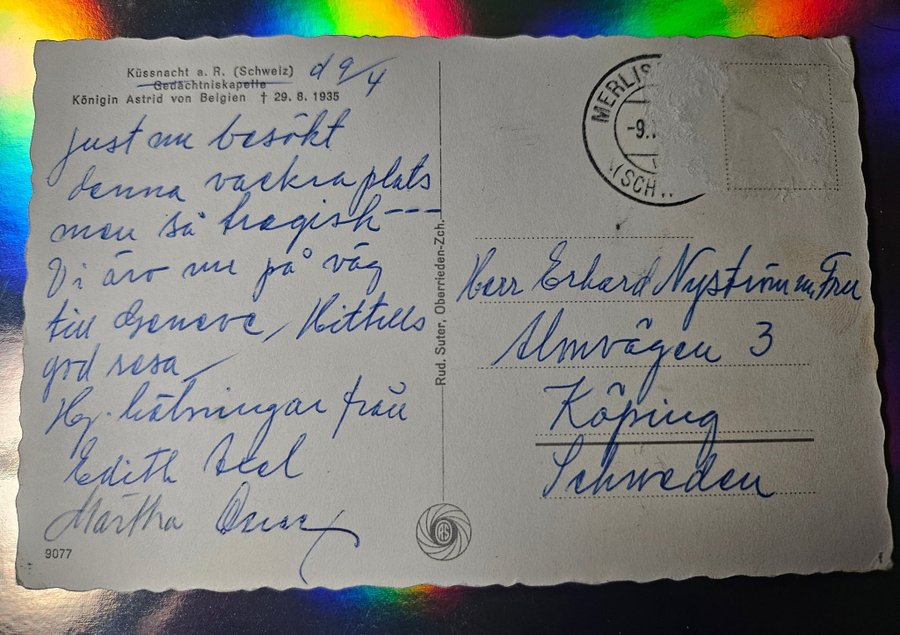 Küssnacht a. R. (Schweiz) d 9/4
Gedächtniskapelle
Königin Astrid von Belgien † 29. 8. 1935
just nu besökt
denna vackra plats
men så tragisk ---
Vi äro nu på väg
till Geneve, Hittills
god resa
Hj. hälsningar från
Edith Axel
Märtha Oscar
9077
Rud. Suter, Oberrieden-Zch.
RS
MERLIS
-9.
(SCH
Herr Erhard Nyström m. Fru
Almvägen 3
Köping
Schweden